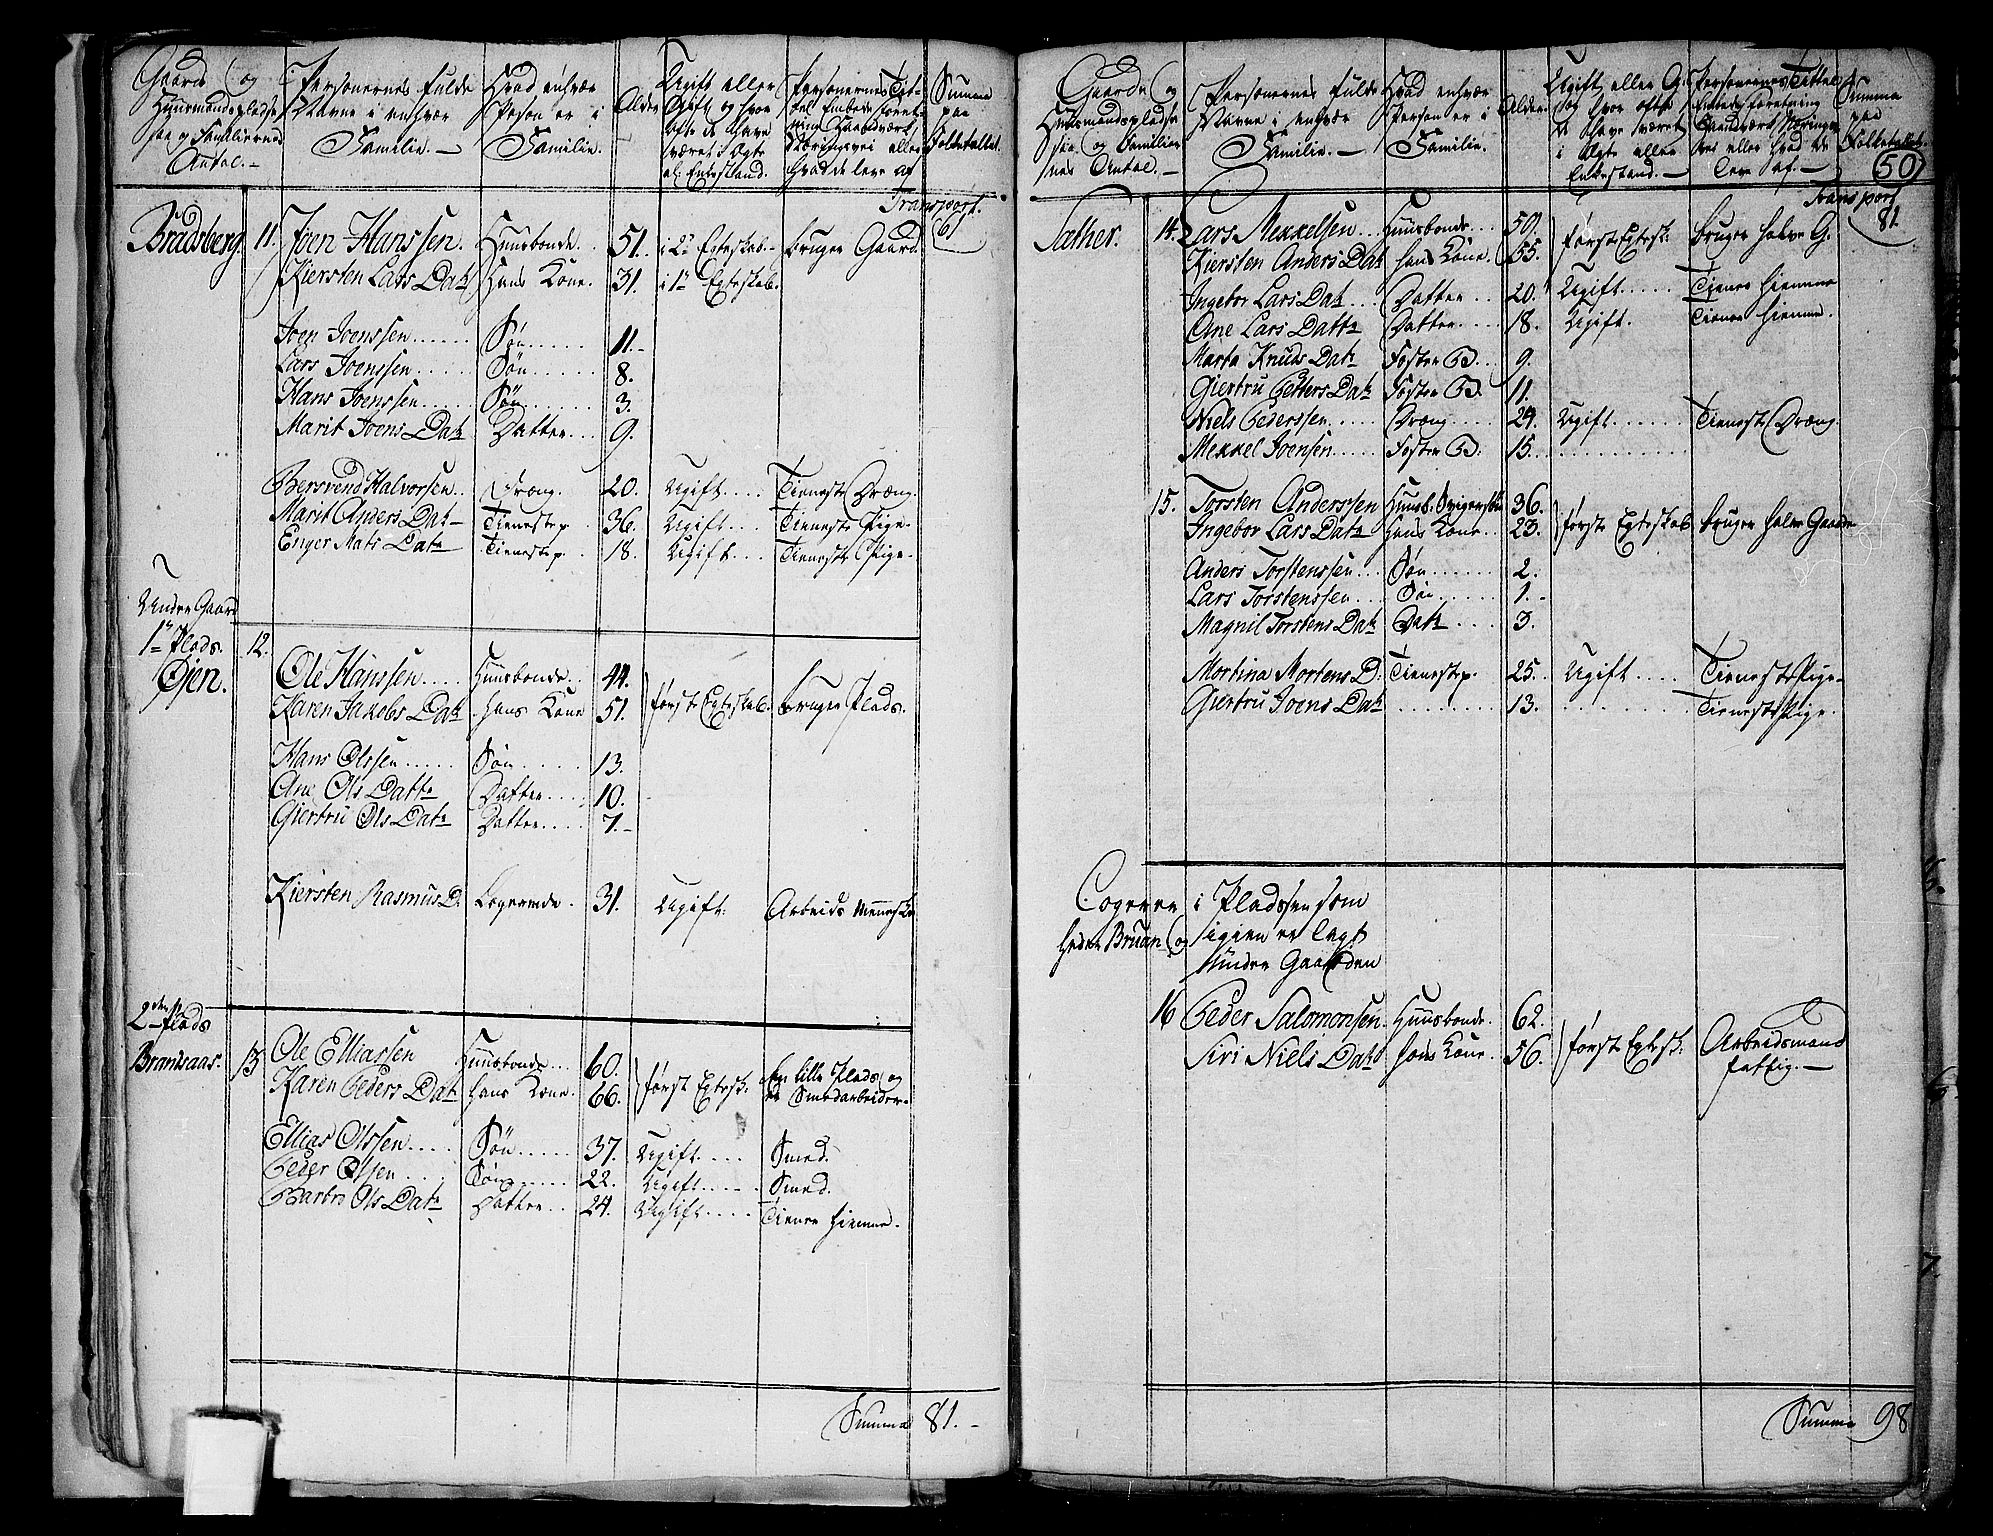 Gaarde og
Huusmandspladse
Familiernes
Antal.
Personernes fulde
Navne i enhvær
Familie.
Hvad enhvær
Person er i
Familie.
Alder
Ugift eller
Gift og hvor
ofte de have
været i Egte
el: Enkestand.
Personernes Tit-
tel Embede forret-
ning Haandværk
Næringsvei eller
hvad de leve af
Summa
paa
Folketallet.
Transport. 61
Bradsberg. 11. Joen Hanssen. Huusbonde. 51. i 2de Egteskab. bruger Gaard.
Kiersten Lars Datr Hans Kone. 31. i 1te Egteskab.
Joen Joenssen Søn 11.
Lars Joenssen Søn 8.
Hans Joenssen Søn 3.
Marit Joens Datr Datter 9.
Bersvend Halvorsen Dræng. 20. Ugift Tieneste Dræng.
Marit Anders Datr Tienestep. 36. Ugift Tieneste Pige.
Enger Mats Datr Tienestep. 18. Ugift Tieneste Pige.
Under Gaard
1te Plads. 12.
Øien. Ole Hanssen Huusbonde 44. første Egteskab. bruger Plads.
Karen Jakobs Datr hans Kone 51.
Hans Olssen Søn 13.
Ane Ols Dattr Datter 10.
Giertru Ols Datr Datter 7.
Kiersten Rasmus D. Logerende. 31. Ugift: Arbeids Menneske
2den Plads
Brandsaas. 13. Ole Elliassen Huusbonde 60. først Egtesk. En lille Plads og
Karen Peders Datr hans Kone. 66. er Smedarbeider.
Ellias Olssen Søn 37. Ugift Smed.
Peder Olssen Søn 22. Ugift Smed.
Barbro Ols Datr Datter 24. Ugift Tiener hiemme.
Summa 81.
Gaarde og
Huusmandspladse
og Familier
nes Antal.
Personernes fulde
Navne i enhvær
Familie.
Hvad enhvær
Person er i
Familie.
Alder
Ugift eller G:
og hvor ofte
de have været
i Egte eller
Enkestand.
Personernes Tittel
Embedsforretning
Haandværk Nærings
vei eller hvad de
leve af.
Summa
paa
Folketallet.
50
Transport 81
Sæther. 14. Lars Mekkelsen Huusbonde 50. først Egtesk. bruger halve G.
Kiersten Anders Datr hans Kone. 55.
Ingebor Lars Datr Datter 20. Ugift Tiener hiemme
Ane Lars Dattr Datter 18. Ugift. Tiener hiemme.
Marta Knuds Datr Foster B. 9.
Giertru Petters Datr Foster B. 11.
Niels Pederssen Dræng 24. Ugift Tieneste Dræng.
Mekkel Joensen Foster B. 15.
15. Torsten Anderssen Huusb. Svigersøn 36. første Egteskab bruger halve Gaarden
Ingebor Lars Datr Hans Kone 23.
Anders Torstenssen Søn 2.
Lars Torstenssen Søn 1.
Magnil Torstens Datr Datr 3.
Mortina Mortens D. Tienestep. 25. Ugift Tieneste Pige
Giertru Joens Datr 13. Tieneste Pige.
Logerer i Pladssen som
heder Bruan og igien er lagt
under Gaarden
16 Peder Salomonsen Huusbonde. 62. først Egtesk: Arbeidsmand
Siri Niels Datr hans Kone. 56. fattig.
Summa 98